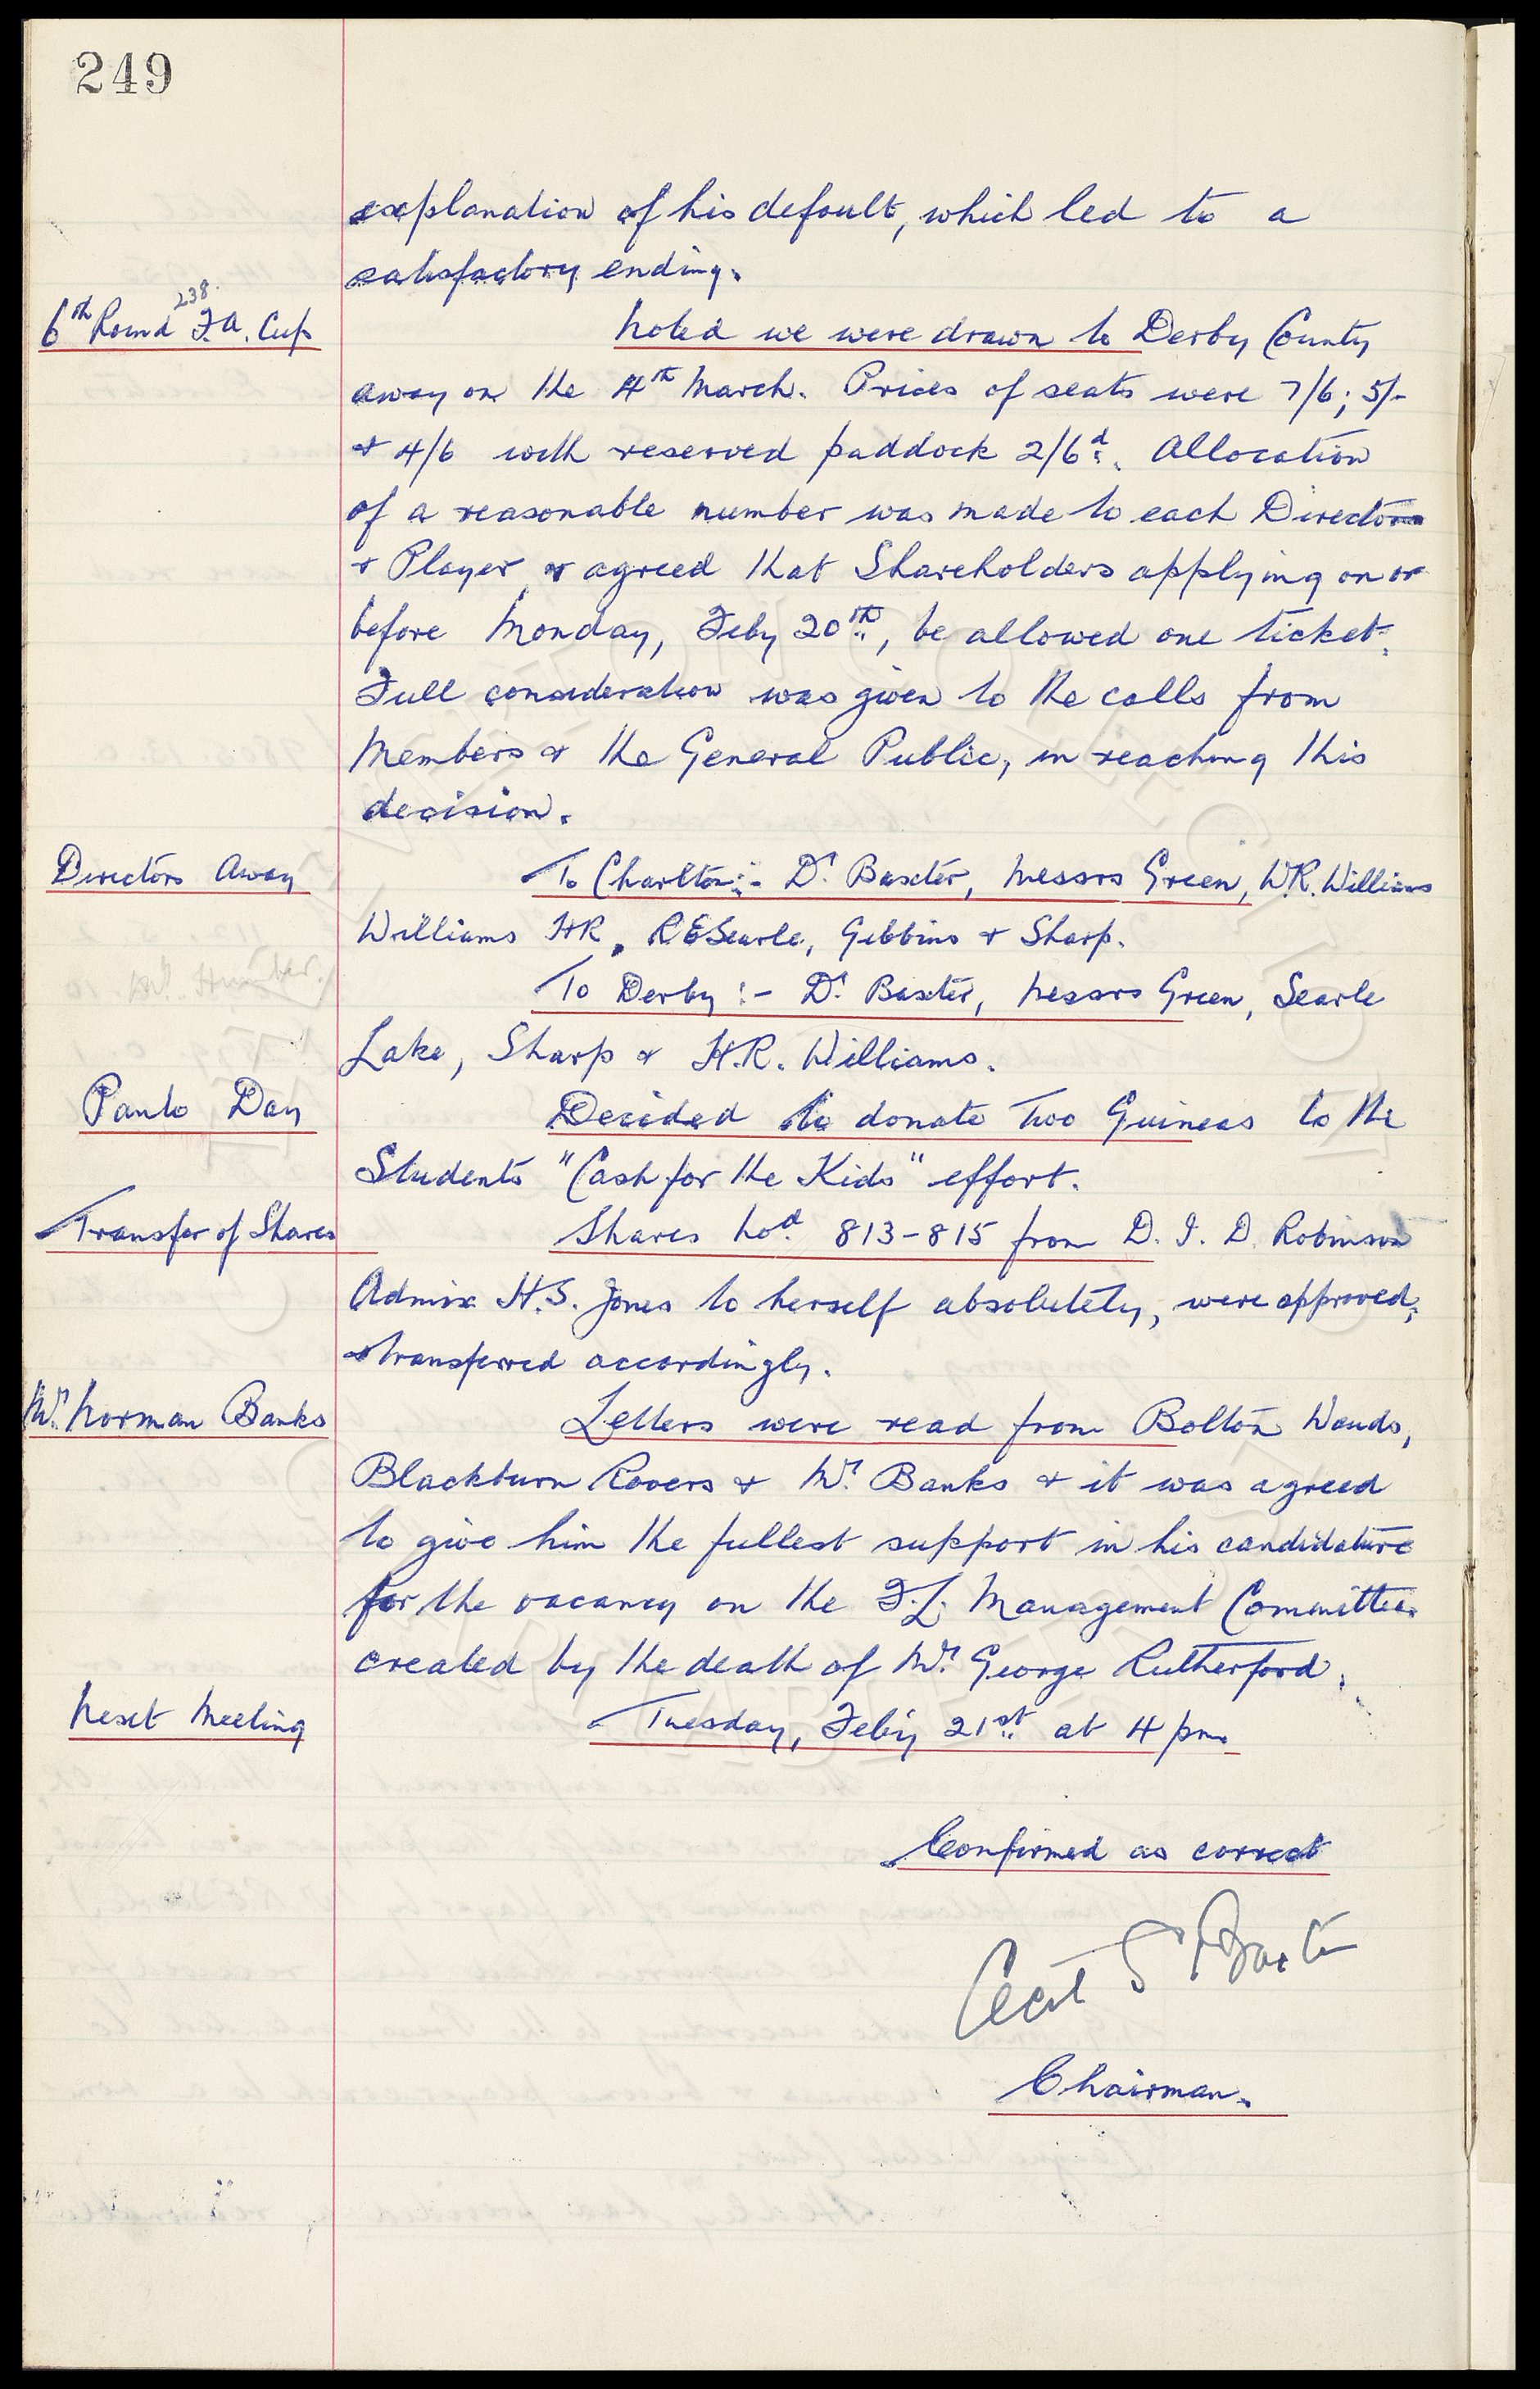 249
explanation of his default, which led to a
satisfactory ending.
238.
6th Round F.A. Cup
Noted we were drawn to Derby County
away on the 4th March. Prices of seats were 7/6; 5/-
& 4/6 with reserved paddock 2/6d. Allocation
of a reasonable number was made to each Director
& Player & agreed that Shareholders applying on or
before Monday, Feby 20th, be allowed one ticket.
Full consideration was given to the calls from
Members & the General Public, in reaching this
decision.
Directors Away
To Charlton:- Dr. Baxter, Messrs Green, W.R. Williams
Williams HR, R E Searle, Gibbins & Sharp.
To Derby :- Dr. Baxter, Messrs Green, Searle
Lake, Sharp & H.R. Williams.
Panto Day
Decided to donate Two Guineas to the
Students "Cash for the Kids" effort.
Transfer of Shares
Shares Nod. 813-815 from D. I. D. Robinson
Admix H.S. Jones to herself absolutely, were approved,
& transferred accordingly.
Mr. Norman Banks
Letters were read from Bolton Wands,
Blackburn Rovers & Mr. Banks & it was agreed
to give him the fullest support in his candidature
for the vacancy on the F.L. Management Committee
created by the death of Mr. George Rutherford.
Next Meeting
Tuesday, Feby 21st at 4 pm.
Confirmed as correct
Cecil S Baxter
Chairman.